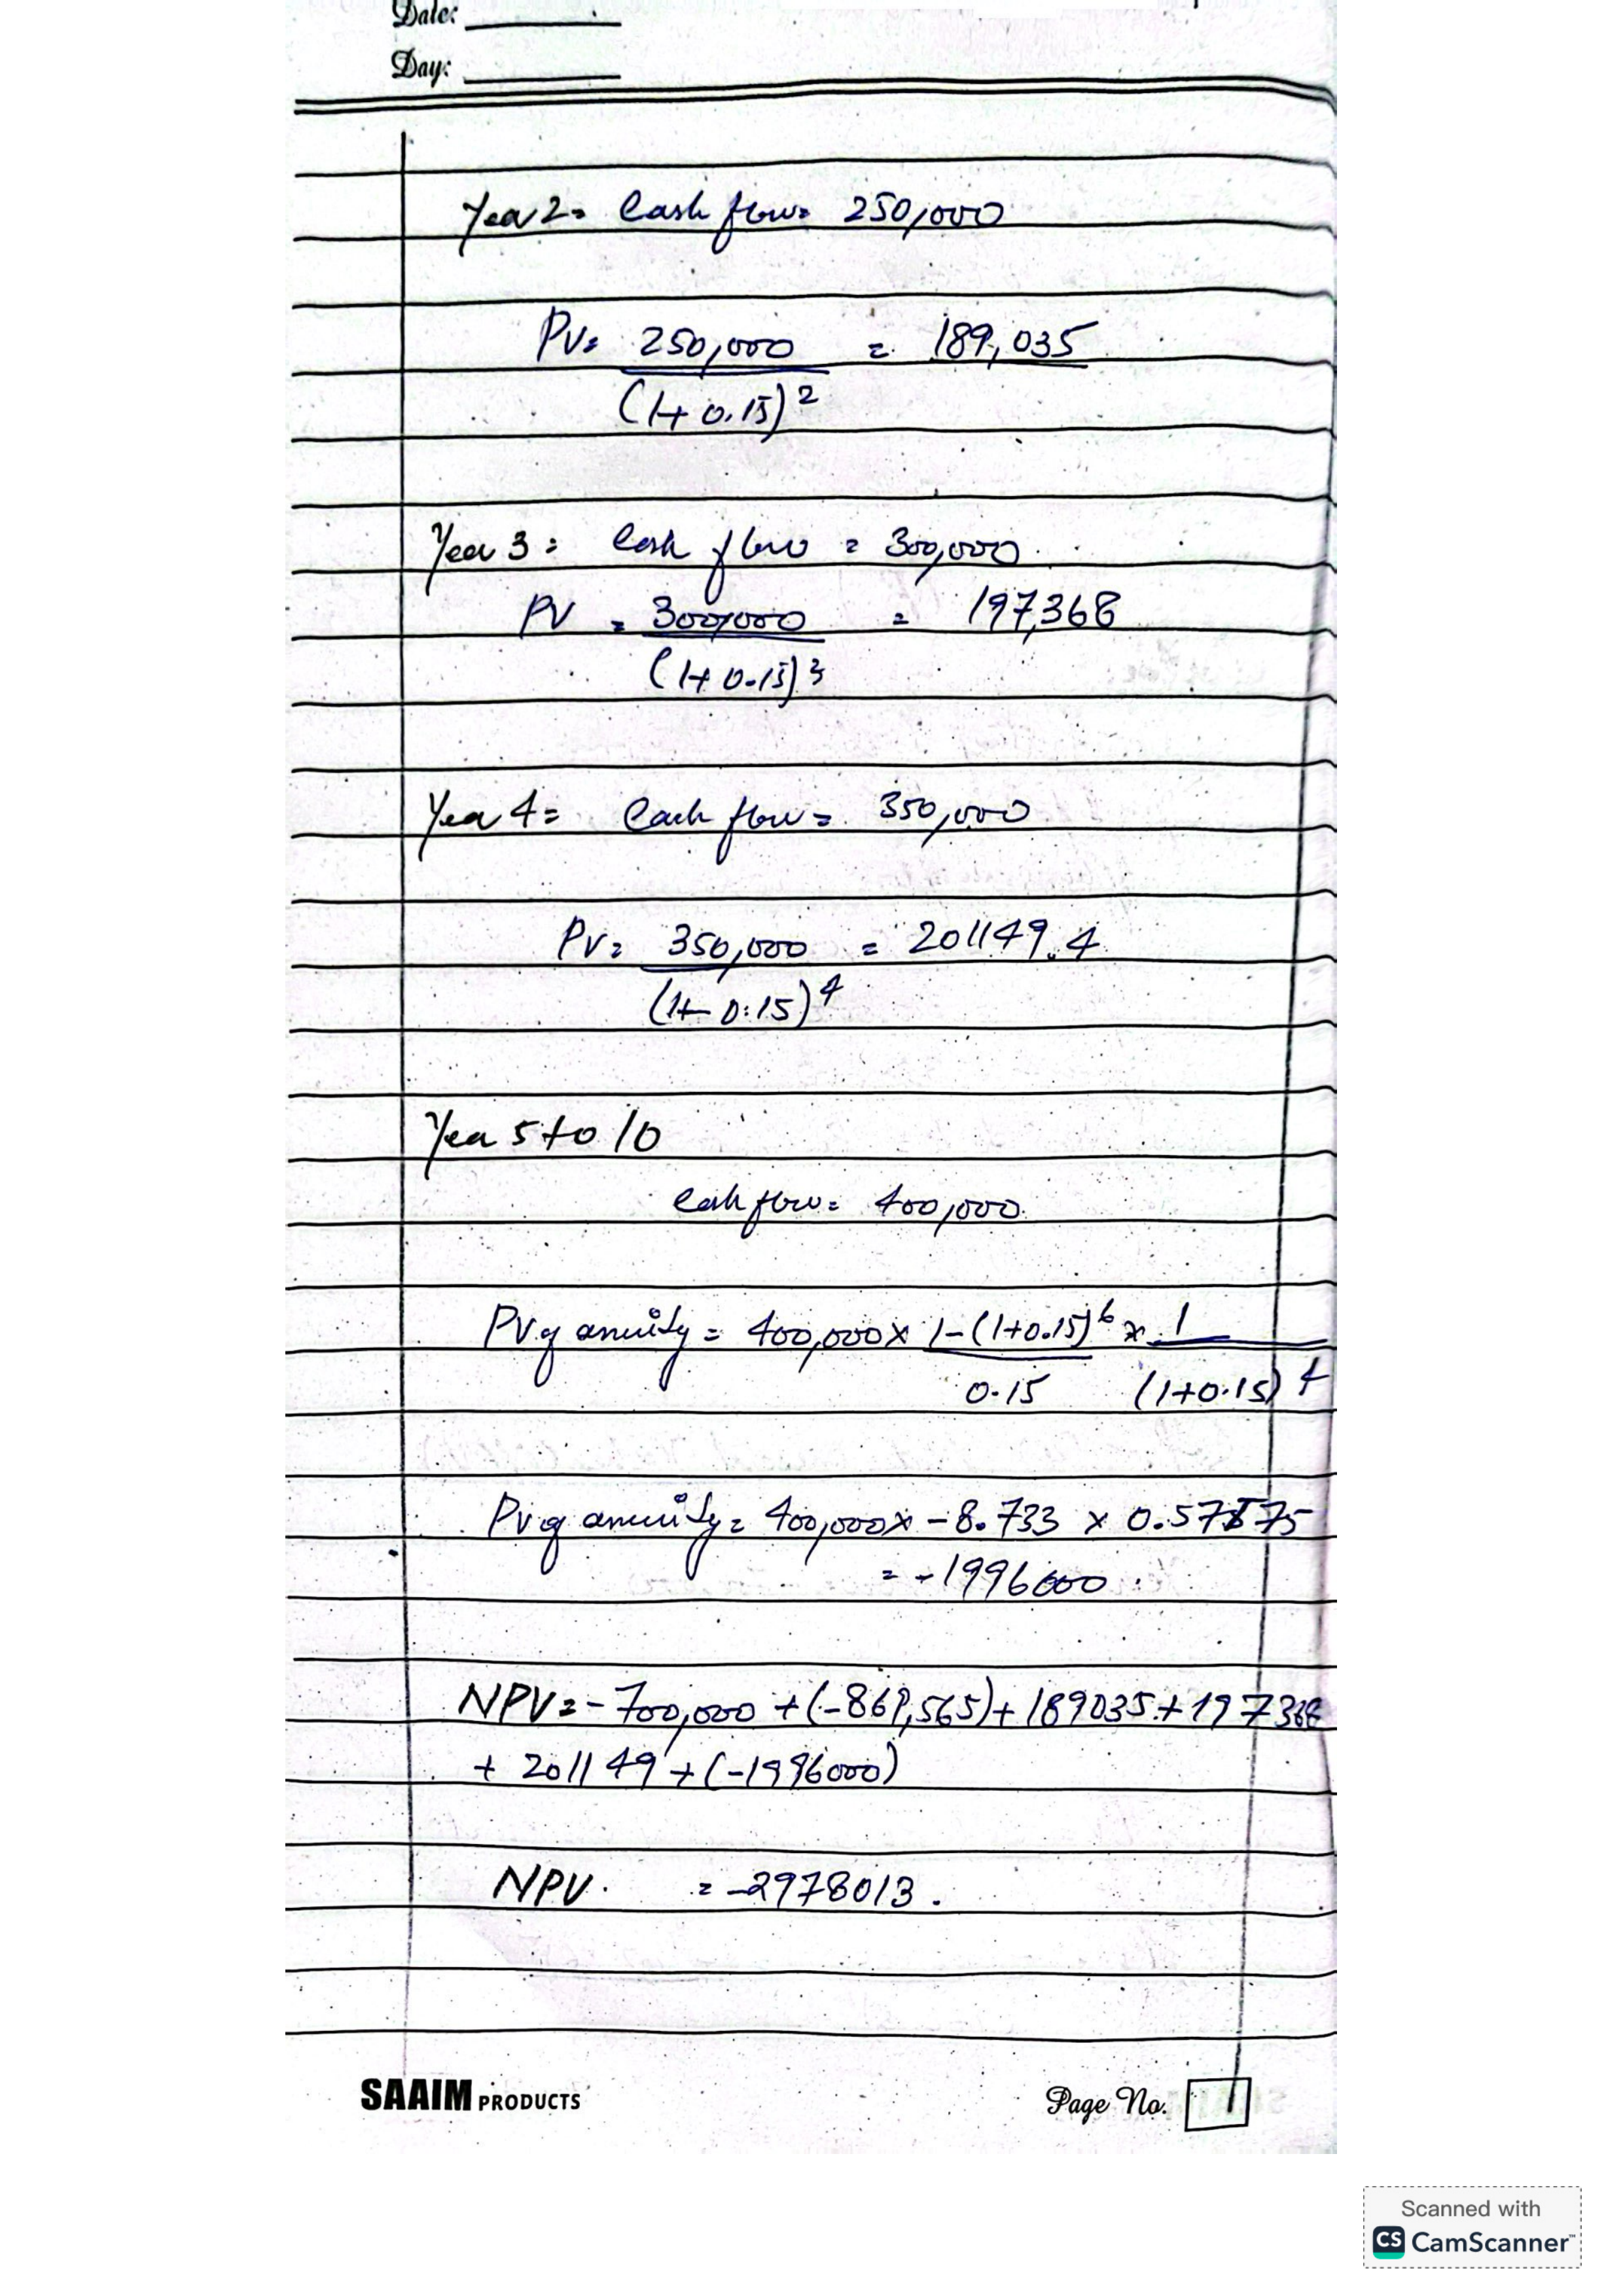 Date:
Day:
Year 2= Cash flow= 250,000
PV= 250,000 = 189,035
(1+0.15)2
Year 3= Cash flow = 300,000
PV = 300,000 = 197,368
(1+0.15)3
Year 4= Cash flow= 350,000
PV= 350,000 = 201149.4
(1+0.15)4
Year 5 to 10
Cash flow= 400,000
PV of anuity = 400,000 x 1-(1+0.15)6 x 1
0.15 (1+0.15)4
PV of anuity = 400,000 x -8.733 x 0.57175
= -1996000
NPV = -700,000 + (-869,565) + 189035 + 197368
+ 201149 + (-1996000)
NPV = -2978013.
SAAIM PRODUCTS
Page No. 1
Scanned with
CS CamScanner